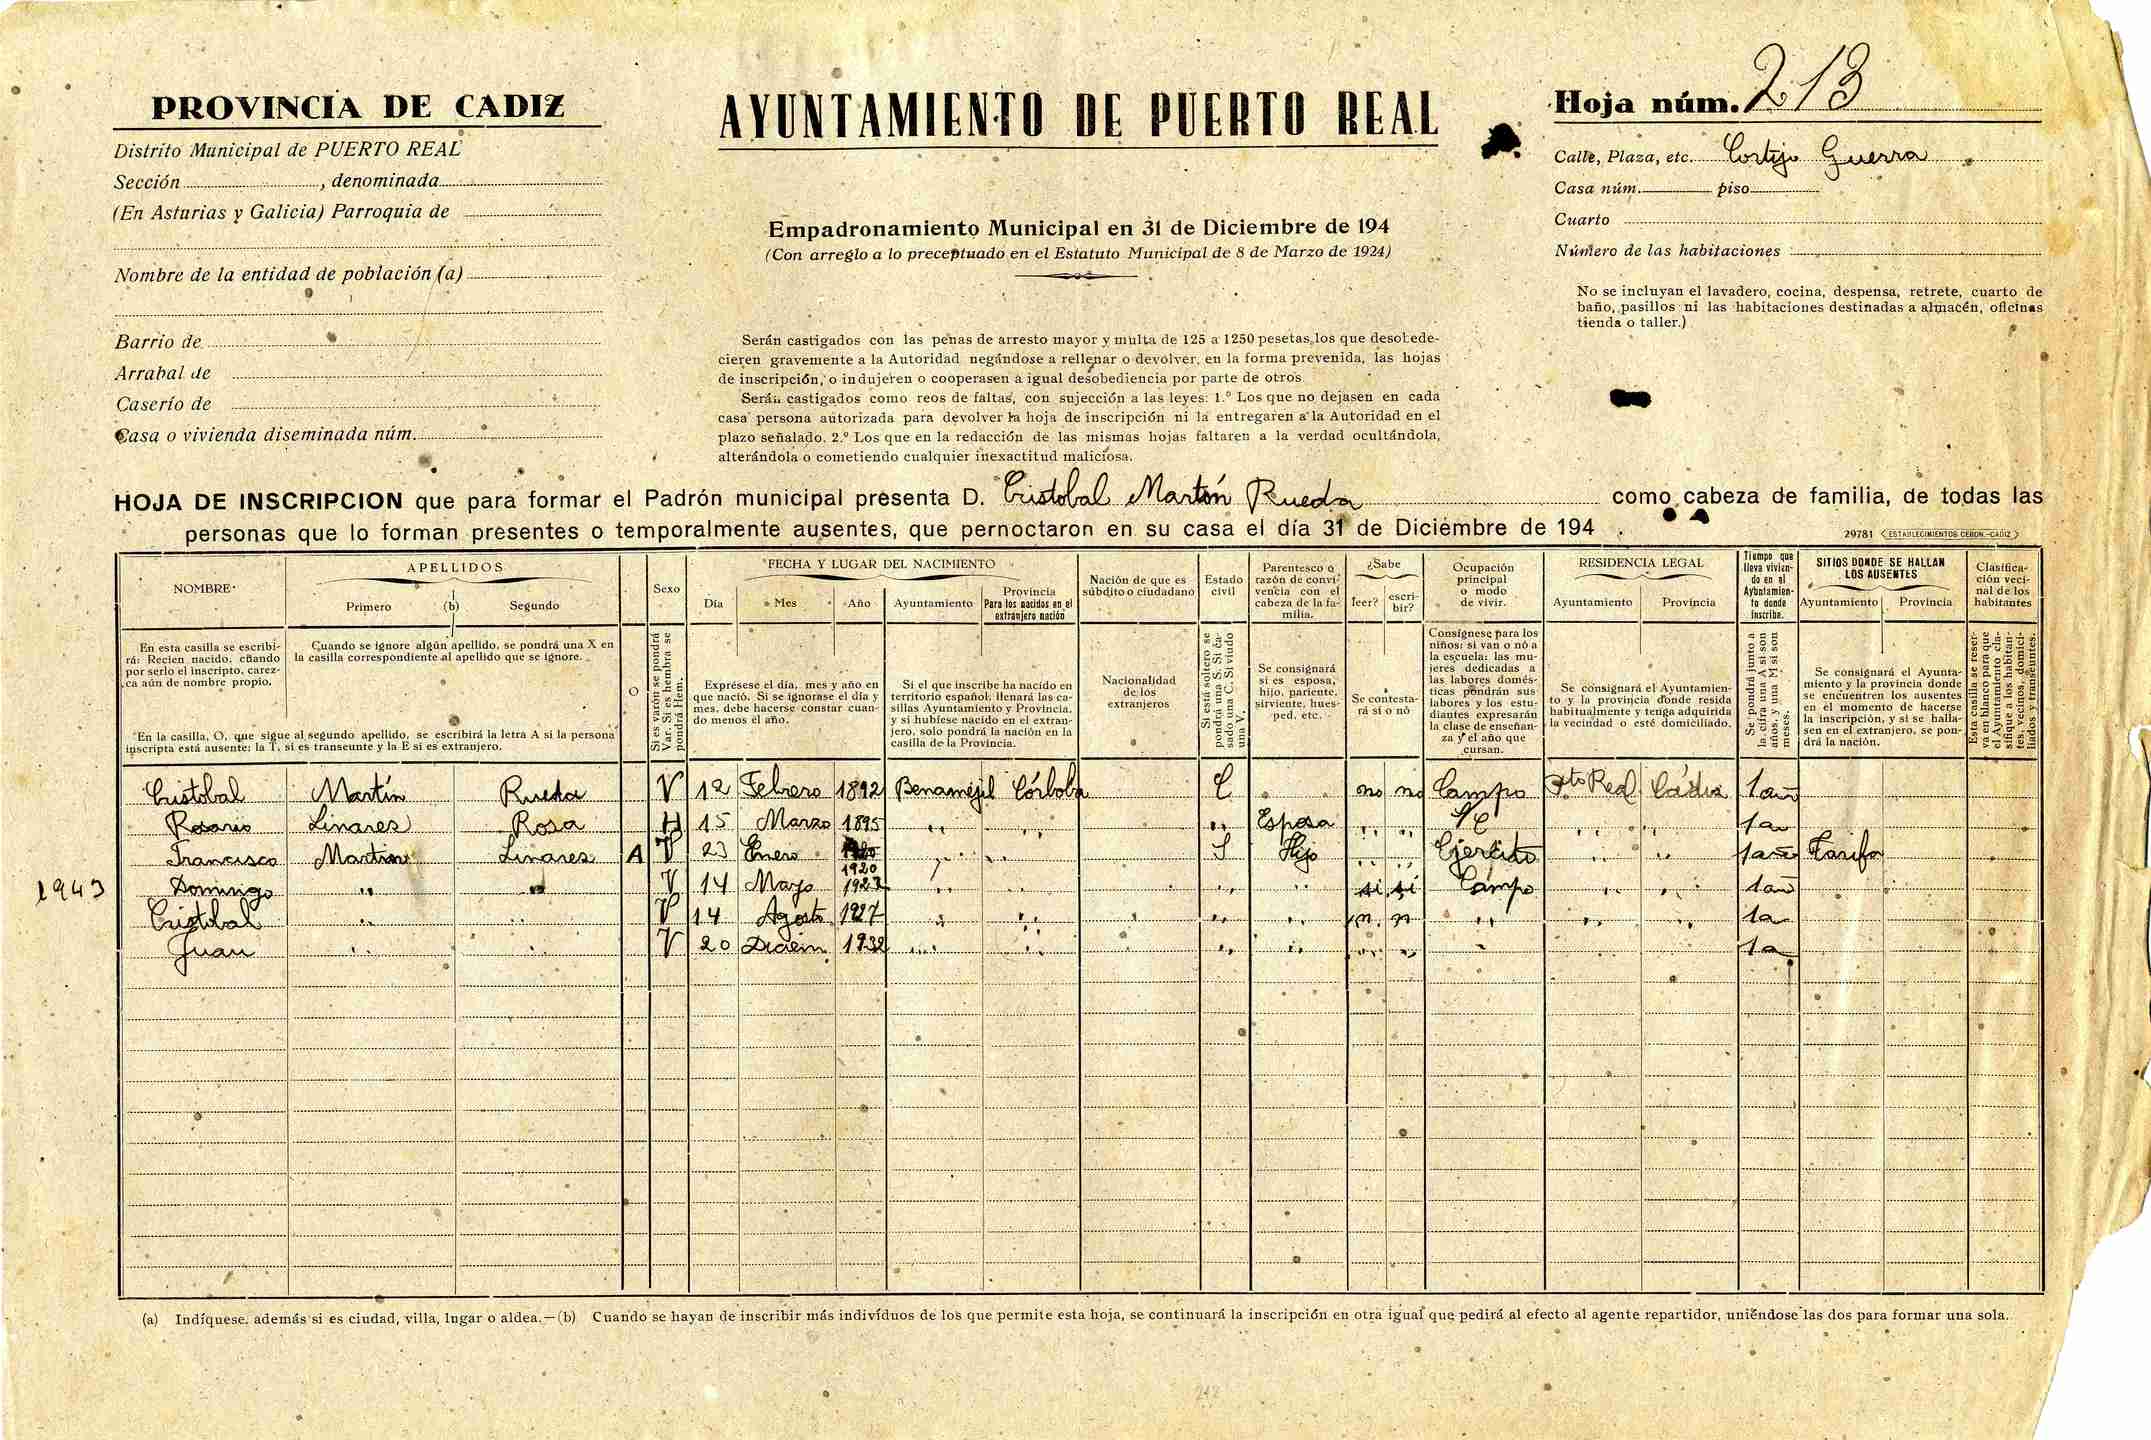 PROVINCIA DE CADIZ
Distrito Municipal de PUERTO REAL
Sección , denominada
(En Asturias y Galicia) Parroquia de
Nombre de la entidad de población (a)
Barrio de
Arrabal de
Caserío de
Casa o vivienda diseminada núm.
AYUNTAMIENTO DE PUERTO REAL
Empadronamiento Municipal en 31 de Diciembre de 194
(Con arreglo a lo preceptuado en el Estatuto Municipal de 8 de Marzo de 1924)
Serán castigados con las penas de arresto mayor y multa de 125 a 1250 pesetas, los que desobede-
cieren gravemente a la Autoridad negándose a rellenar o devolver, en la forma prevenida, las hojas
de inscripción, o indujeren o cooperasen a igual desobediencia por parte de otros
Serán castigados como reos de faltas, con sujección a las leyes: 1.º Los que no dejasen en cada
casa persona autorizada para devolver la hoja de inscripción ni la entregaren a la Autoridad en el
plazo señalado. 2.º Los que en la redacción de las mismas hojas faltaren a la verdad ocultándola,
alterándola o cometiendo cualquier inexactitud maliciosa.
Hoja núm. 213
Calle, Plaza, etc. Cortijo Guerra
Casa núm. piso
Cuarto
Número de las habitaciones
No se incluyan el lavadero, cocina, despensa, retrete, cuarto de
baño, pasillos ni las habitaciones destinadas a almacén, oficinas
tienda o taller.)
HOJA DE INSCRIPCION que para formar el Padrón municipal presenta D. Cristobal Martín Rueda como cabeza de familia, de todas las
personas que lo forman presentes o temporalmente ausentes, que pernoctaron en su casa el día 31 de Diciembre de 194 .
29781 (ESTABLECIMIENTOS CERON.-CADIZ)
NOMBRE
APELLIDOS
Primero (b) Segundo
Sexo
FECHA Y LUGAR DEL NACIMIENTO
Día Mes Año Ayuntamiento
Provincia
Para los nacidos en el
extranjero nación
Nación de que es
súbdito o ciudadano
Estado
civil
Parentesco o
razón de convi-
vencia con el
cabeza de la fa-
milia.
¿Sabe
leer? escri-
bir?
Ocupación
principal
o modo
de vivir.
RESIDENCIA LEGAL
Ayuntamiento Provincia
Tiempo que
lleva vivien-
do en el
Ayuntamien-
to donde
inscribe.
SITIOS DONDE SE HALLAN
LOS AUSENTES
Ayuntamiento Provincia
Clasifica-
ción veci-
nal de los
habitantes
En esta casilla se escribi-
rá: Recien nacido, cuando
por serlo el inscripto, carez-
ca aún de nombre propio.
Cuando se ignore algún apellido, se pondrá una X en
la casilla correspondiente al apellido que se ignore.
En la casilla, O, que sigue al segundo apellido, se escribirá la letra A si la persona
inscripta está ausente: la T, si es transeunte y la E si es extranjero.
O
Si es varón se pondrá
Var. Si es hembra se
pondrá Hem.
Exprésese el día, mes y año en
que nació. Si se ignorase el día y
mes, debe hacerse constar cuan-
do menos el año.
Si el que inscribe ha nacido en
territorio español, llenará las ca-
sillas Ayuntamiento y Provincia,
y si hubiese nacido en el extran-
jero, solo pondrá la nación en la
casilla de la Provincia.
Nacionalidad
de los
extranjeros
Si está soltero se
pondrá una S. Si ca-
sado una C. Si viudo
una V.
Se consignará
si es esposa,
hijo, pariente,
sirviente, hues-
ped, etc.
Se contesta-
rá si o nó
Consígnese para los
niños: si van o nó a
la escuela: las mu-
jeres dedicadas a
las labores domés-
ticas pondrán sus
labores y los estu-
diantes expresarán
la clase de enseñan-
za y el año que
cursan.
Se consignará el Ayuntamien-
to y la provincia donde resida
habitualmente y tenga adquirida
la vecindad o esté domiciliado.
Se pondrá junto a
la cifra una A si son
años, y una M si son
meses.
Se consignará el Ayunta-
miento y la provincia donde
se encuentren los ausentes
en el momento de hacerse
la inscripción, y si se halla-
sen en el extranjero, se pon-
drá la nación.
Esta casilla se reser-
va en blanco para que
el Ayuntamiento cla-
sifique a los habitan-
tes, vecinos, domici-
liados y transeúntes.
Cristobal Martín Rueda V 12 Febrero 1892 Benamejil Córdoba C no no Campo Pto Real Cádiz 1 añ
Rosario Linares Rosa H 15 Marzo 1895 " " " Esposa " " S/C " " 1 a
Francisco Martin Linares A V 23 Enero 1920 " " S Hijo " " Ejercito " " 1 añ Tarifa
1943 Domingo " " V 14 Mayo 1923 " " " " si si Campo " " 1 añ
Cristobal " " V 14 Agosto 1927 " " " " n n " " " 1 a
Juan " " V 20 Diciem 1932 " " " " " " " " " 1 a
(a) Indíquese, además si es ciudad, villa, lugar o aldea.—(b) Cuando se hayan de inscribir más indivíduos de los que permite esta hoja, se continuará la inscripción en otra igual que pedirá al efecto al agente repartidor, uniéndose las dos para formar una sola.